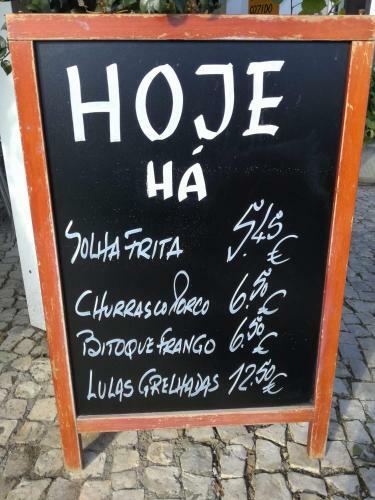 COZIDO
HOJE
HÁ
SOLHA FRITA 5.45 €
CHURRASCO PORCO 6.50 €
BITOQUE FRANGO 6.50 €
LULAS GRELHADAS 12.50 €